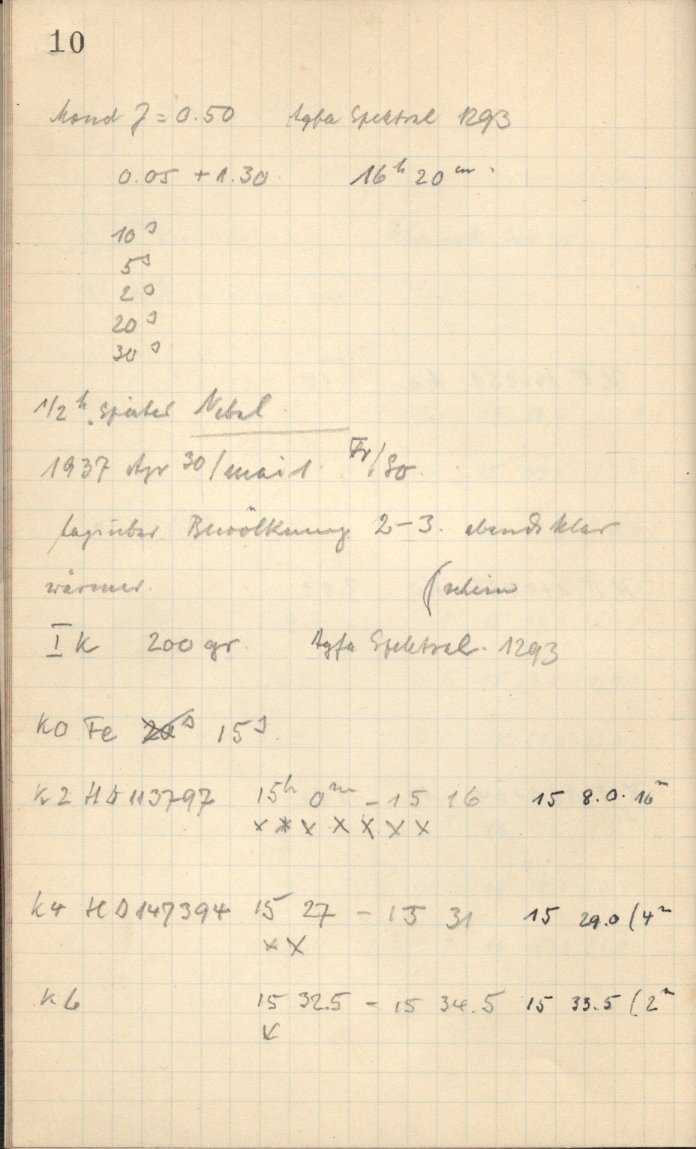 10
Mond J = 0.50 Agfa Spektral 1293
0.05 + 1.30 16h 20m
10s
5s
2s
20s
30s
1/2h später Nebel
1937 Apr 30/Mai 1. Fr/So.
tagsüber Bewölkung 2-3. abends klar
wärmer. (schein
I K 200 gr. Agfa Spektral. 1293
K0 Fe 20s 15s
K2 HD 113797 15h 0m - 15 16 15 8.0. 16m
x x x x x x x
K4 HD 147394 15 27 - 15 31 15 29.0 (4m
x x
K6 15 32.5 - 15 34.5 15 33.5 (2m
x